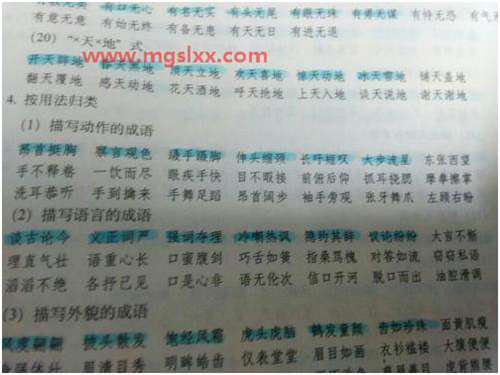 有口无心 有名无实 有头无尾 有眼无珠 有勇无谋 有恃无恐
有意无意 有始无终 有备无患 有天无日 有进无退
(20) “×天×地” 式
www.mgslxx.com
开天辟地 天黑地 顶天立地 欢天喜地 惊天动地 冰天雪地 铺天盖地
翻天覆地 感天动地 花天酒地 呼天抢地 上天入地 谈天说地 谢天谢地
4. 按用法归类
(1) 描写动作的成语
昂首挺胸 察言观色 蹑手蹑脚 伸头缩颈 长吁短叹 大步流星 东张西望
手不释卷 一饮而尽 眼疾手快 目不暇接 前俯后仰 抓耳挠腮 摩拳擦掌
洗耳恭听 手到擒来 手舞足蹈 昂首阔步 袖手旁观 张牙舞爪 左顾右盼
(2) 描写语言的成语
谈古论今 义正词严 强词夺理 冷嘲热讽 隐约其辞 议论纷纷 大言不惭
理直气壮 语重心长 口蜜腹剑 巧舌如簧 指桑骂槐 对答如流 窃窃私语
滔滔不绝 各抒己见 口是心非 语无伦次 信口开河 脱口而出 油腔滑调
(3) 描写外貌的成语
风度翩翩 披头散发 饱经风霜 虎头虎脑 鹤发童颜 面黄肌瘦
身强体壮 眉清目秀 明眸皓齿 仪表堂堂 眉目如画 衣衫褴褛 大腹便便